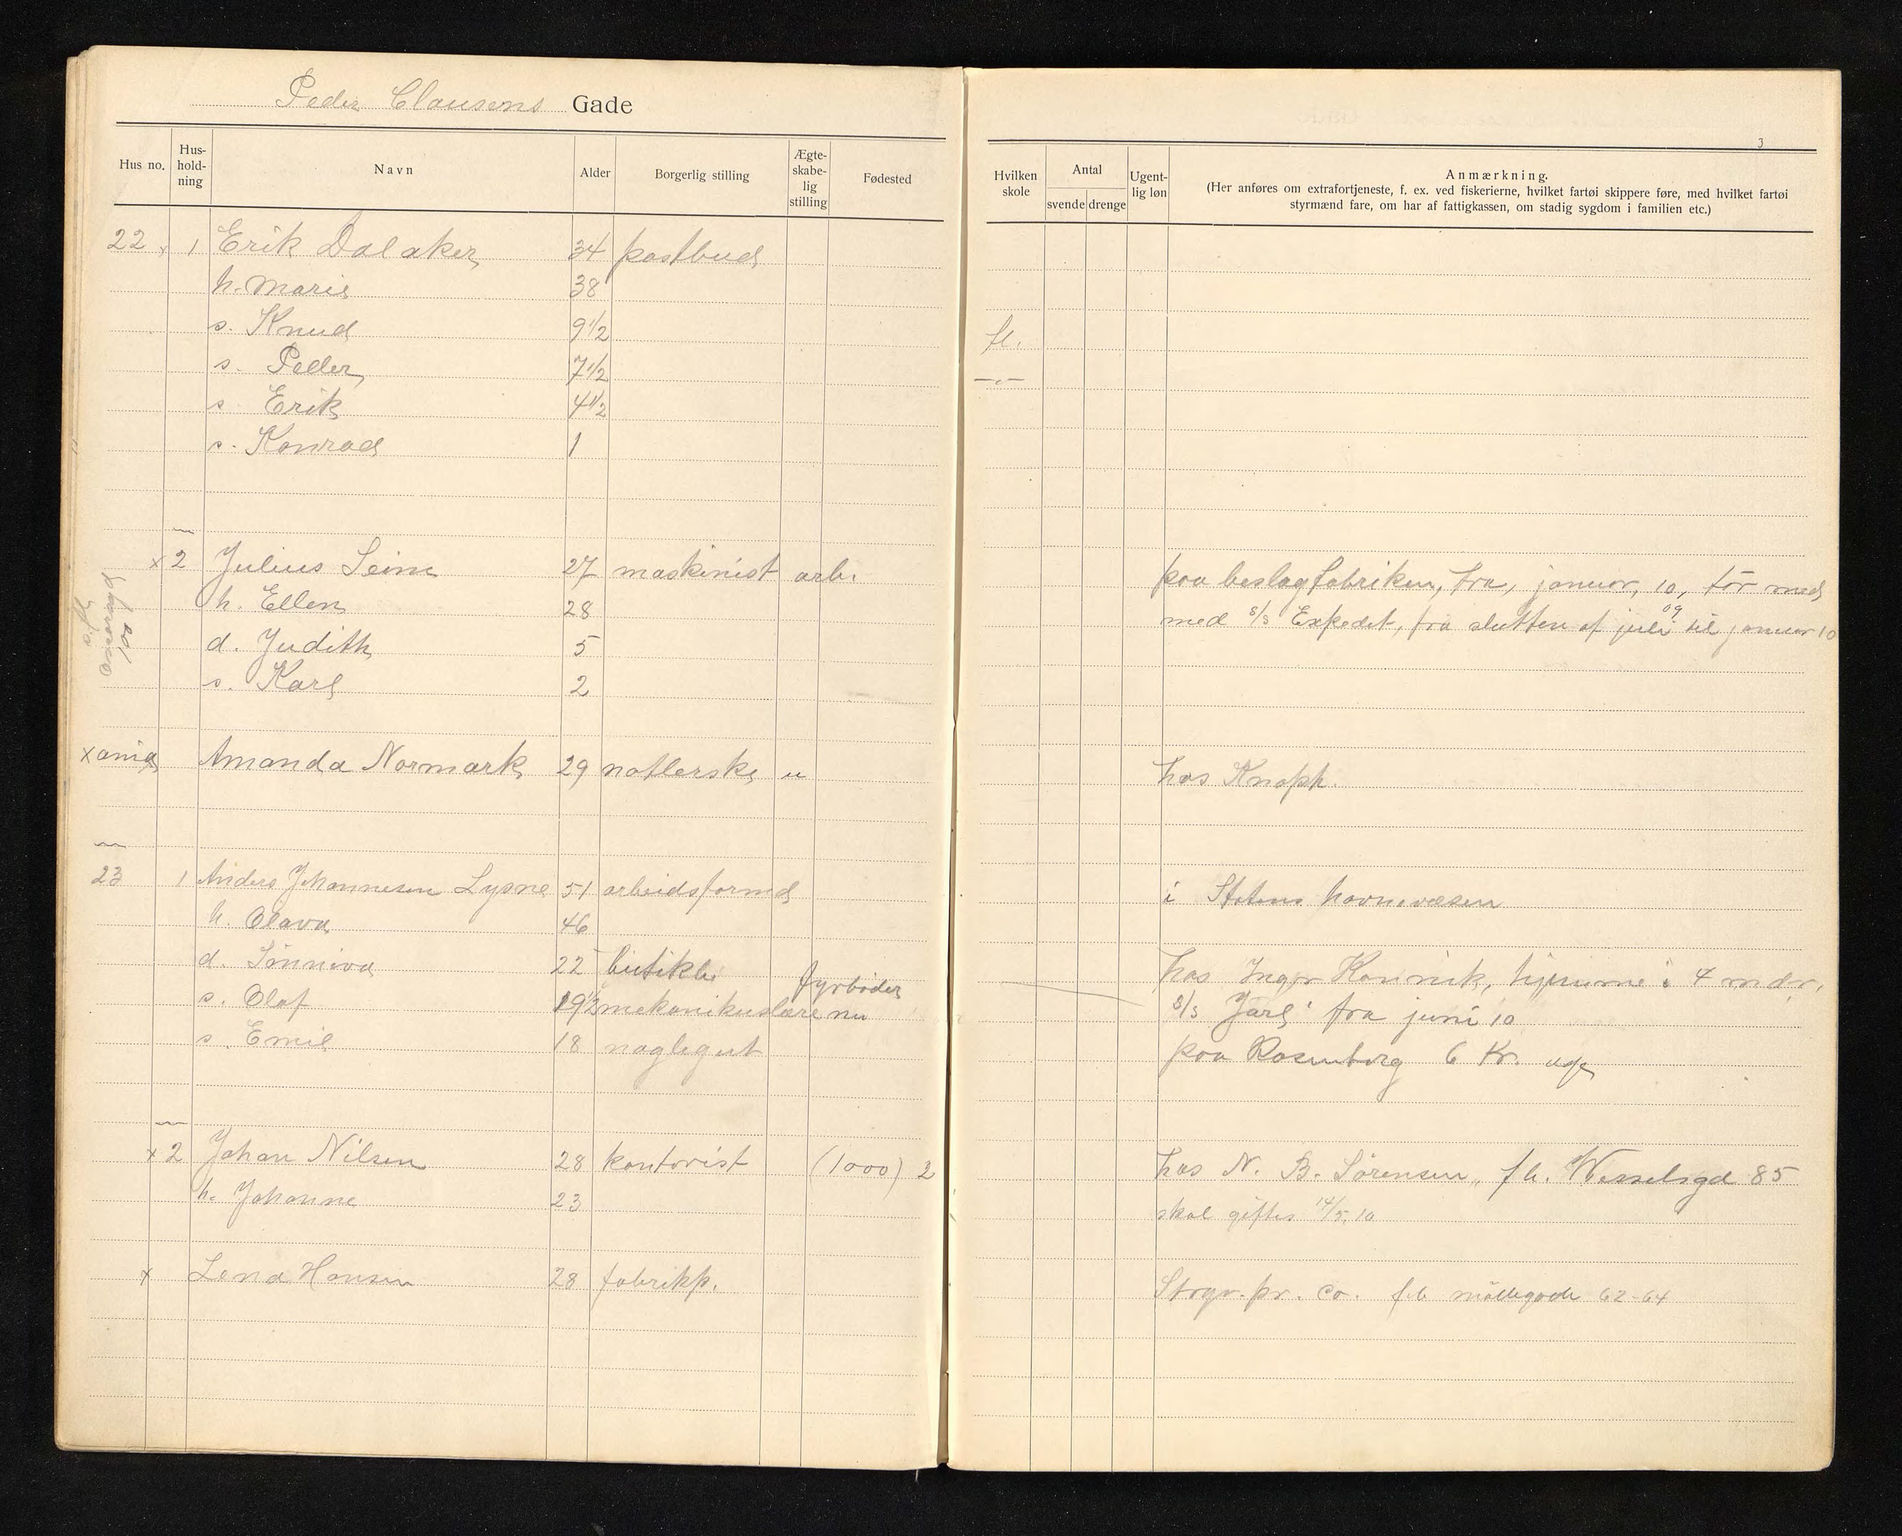 Peder Clausens Gade
Hus no. Hus-hold-ning Navn Alder Borgerlig stilling Ægte-skabe-lig stilling Fødested
22 x 1 Erik Dalaker 34 postbud
h. Marie 38
s. Knud 9 1/2
s. Peder 7 1/2
s. Erik 4 1/2
s. Konrad 1
x 2 Julius Seim 27 maskinist arb.
h. Ellen 28
d. Judith 5
s. Karl 2
x Amanda Normark 29 natlerske u
23 1 Anders Johannesen Lysne 51 arbeidsformd
h. Olava 46
d. Sønniva 22 butikb.
s. Olaf 19 1/2 mekanikuslære nu fyrbøder
s. Emil 18 naglegut
x 2 Johan Nilsen 28 kontorist (1000) 2
h. Johanne 23
x Lena Hansen 28 fabrikp.
3
Hvilken skole Antal svende drenge Ugent-lig løn Anmærkning.
(Her anføres om extrafortjeneste, f. ex. ved fiskerierne, hvilket fartøi skippere føre, med hvilket fartøi
styrmænd fare, om har af fattigkassen, om stadig sygdom i familien etc.)
fl.
—„—
paa beslagfabriken, fra, januar, 10, før med
med s/s Expedit, fra slutten af juli 09 til januar 10
hos Knoph.
i Statens havnevæsen
hos Inger Konvik, hjemme i 4 mdr.
s/s Jarl fra juni 10
paa Rosenberg 6 Kr. uge
hos N. B. Sørensen, f.b. Wesselsgd 85
skal giftes 14/5.10
f.b. møllegade 62-64